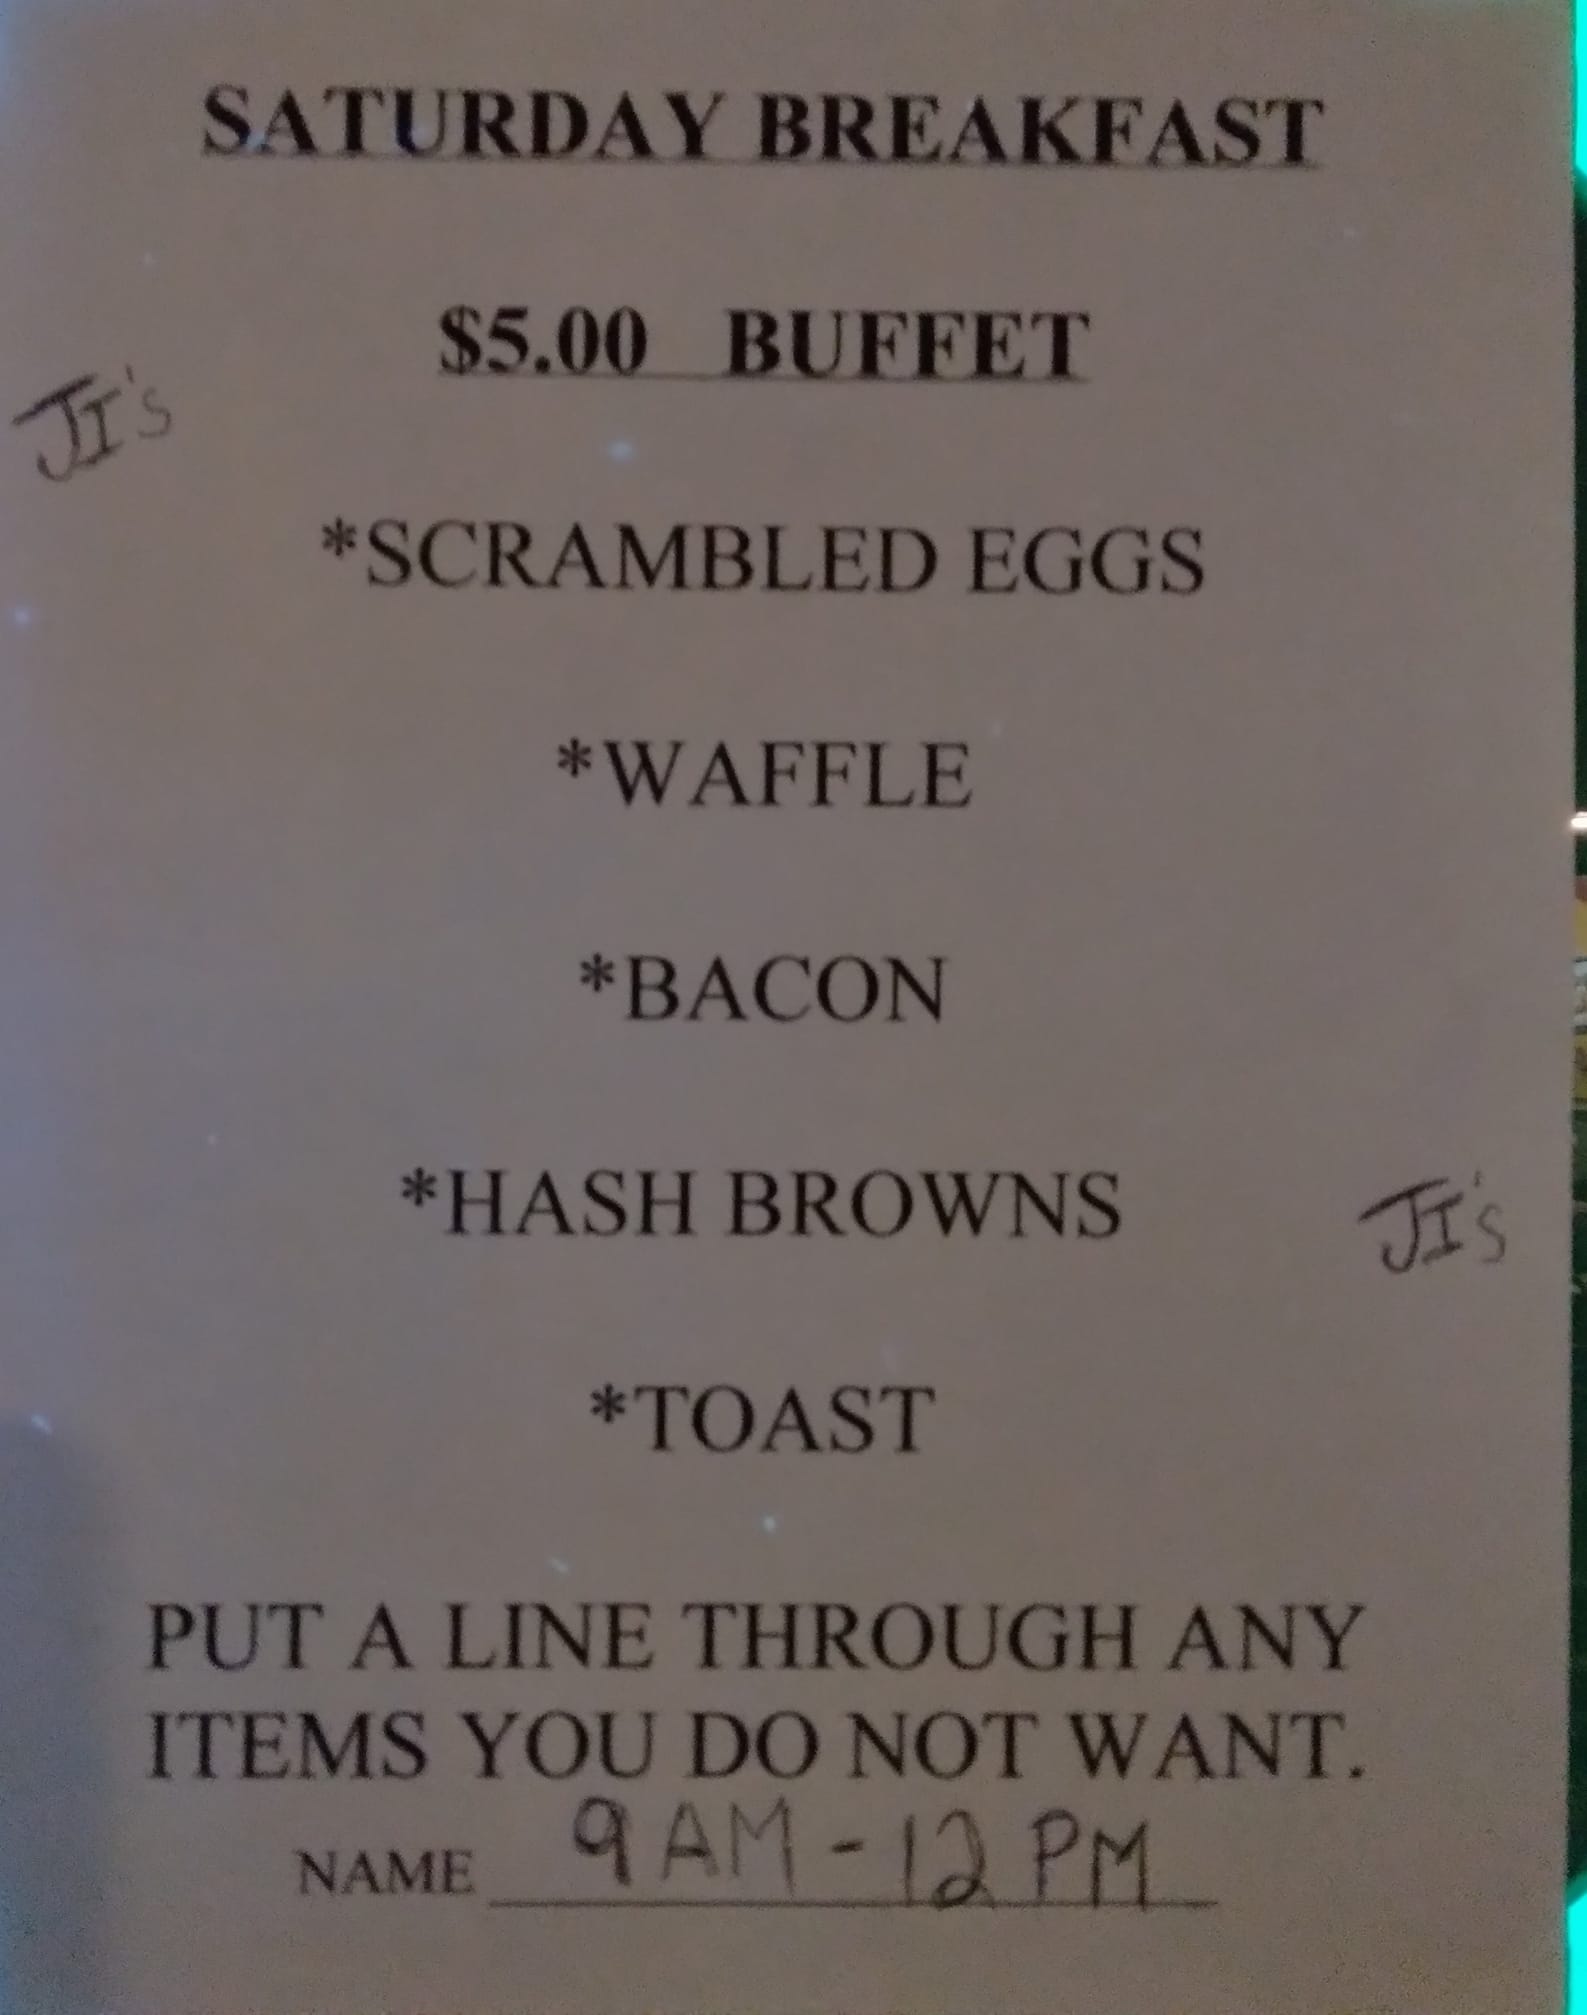 SATURDAY BREAKFAST
$5.00 BUFFET
JI's
*SCRAMBLED EGGS
*WAFFLE
*BACON
*HASH BROWNS
JI's
*TOAST
PUT A LINE THROUGH ANY
ITEMS YOU DO NOT WANT.
NAME 9 AM - 12 PM